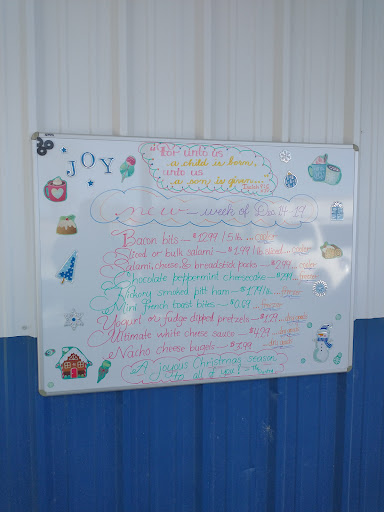 JOY
"For unto us
a child is born,
unto us
a son is given...
Isaiah 9:6
NEW — week of Dec 14-19
Bacon bits — $12.99 / 5 lb. ... cooler
Sliced or bulk salami — $1.99 / lb
Salami, cheese & breadstick packs — $2.99 ... cooler
Chocolate peppermint cheesecake — $2.99 ... freezer
Hickory smoked pit ham — $1.79 lb. ... freezer
Mini french toast bites — $0.69 ... freezer
Yogurt or fudge dipped pretzels — $1.29 ... dry goods
Ultimate white cheese sauce — $4.29 ... dry goods
Nacho cheese bugels — $3.99 ... dry goods
A joyous Christmas season
to all of you!